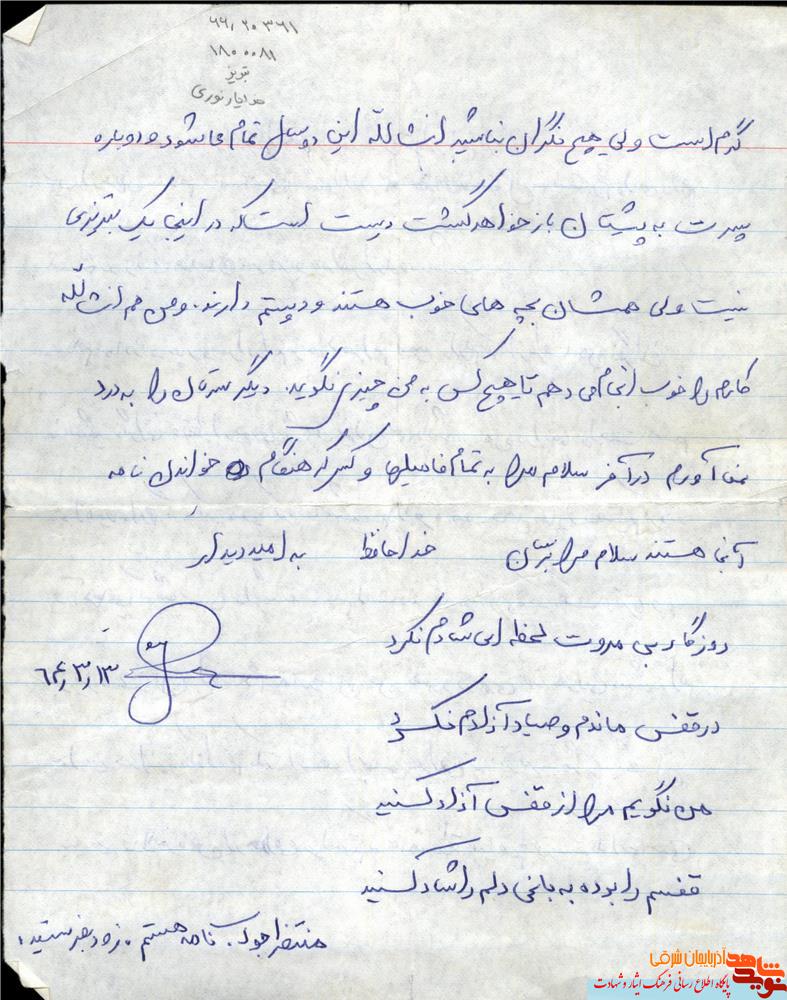 ۶۶/۲۰۳۶۱
۱۸۰۰۰۸۱
تبریز
خدایار نوری
گرم است ولی هیچ نگران نباشید انشاللّه این دو سال تمام می‌شود و دوباره
پسرت به پیشتان باز خواهد گشت درست است که در اینجا یک تبریزی
نیست ولی همشان بچه های خوب هستند و دوستم دارند. و من هم انشاللّه
کارم را خوب انجام می دهم تا هیچ کس به من چیزی نگوید. دیگر سرتان را به درد
نمی آورم در آخر سلام مرا به تمام فامیلها و کسی که هنگام خواندن نامه
آنجا هستند سلام مرا برسان خداحافظ به امید دیدار
روزگار بی مروت لحظه ای شادم نکرد
۶۴/۳/۱۳
در قفس ماندم و صیاد آزادم نکرد
من نگویم مرا از قفس آزاد کنید
قفسم را بوده به باغی دلم را شاد کنید
منتظر جواب نامه هستم. زود بفرستید.
نوید شاهد آذربایجان شرقی
پایگاه اطلاع رسانی فرهنگ ایثار و شهادت